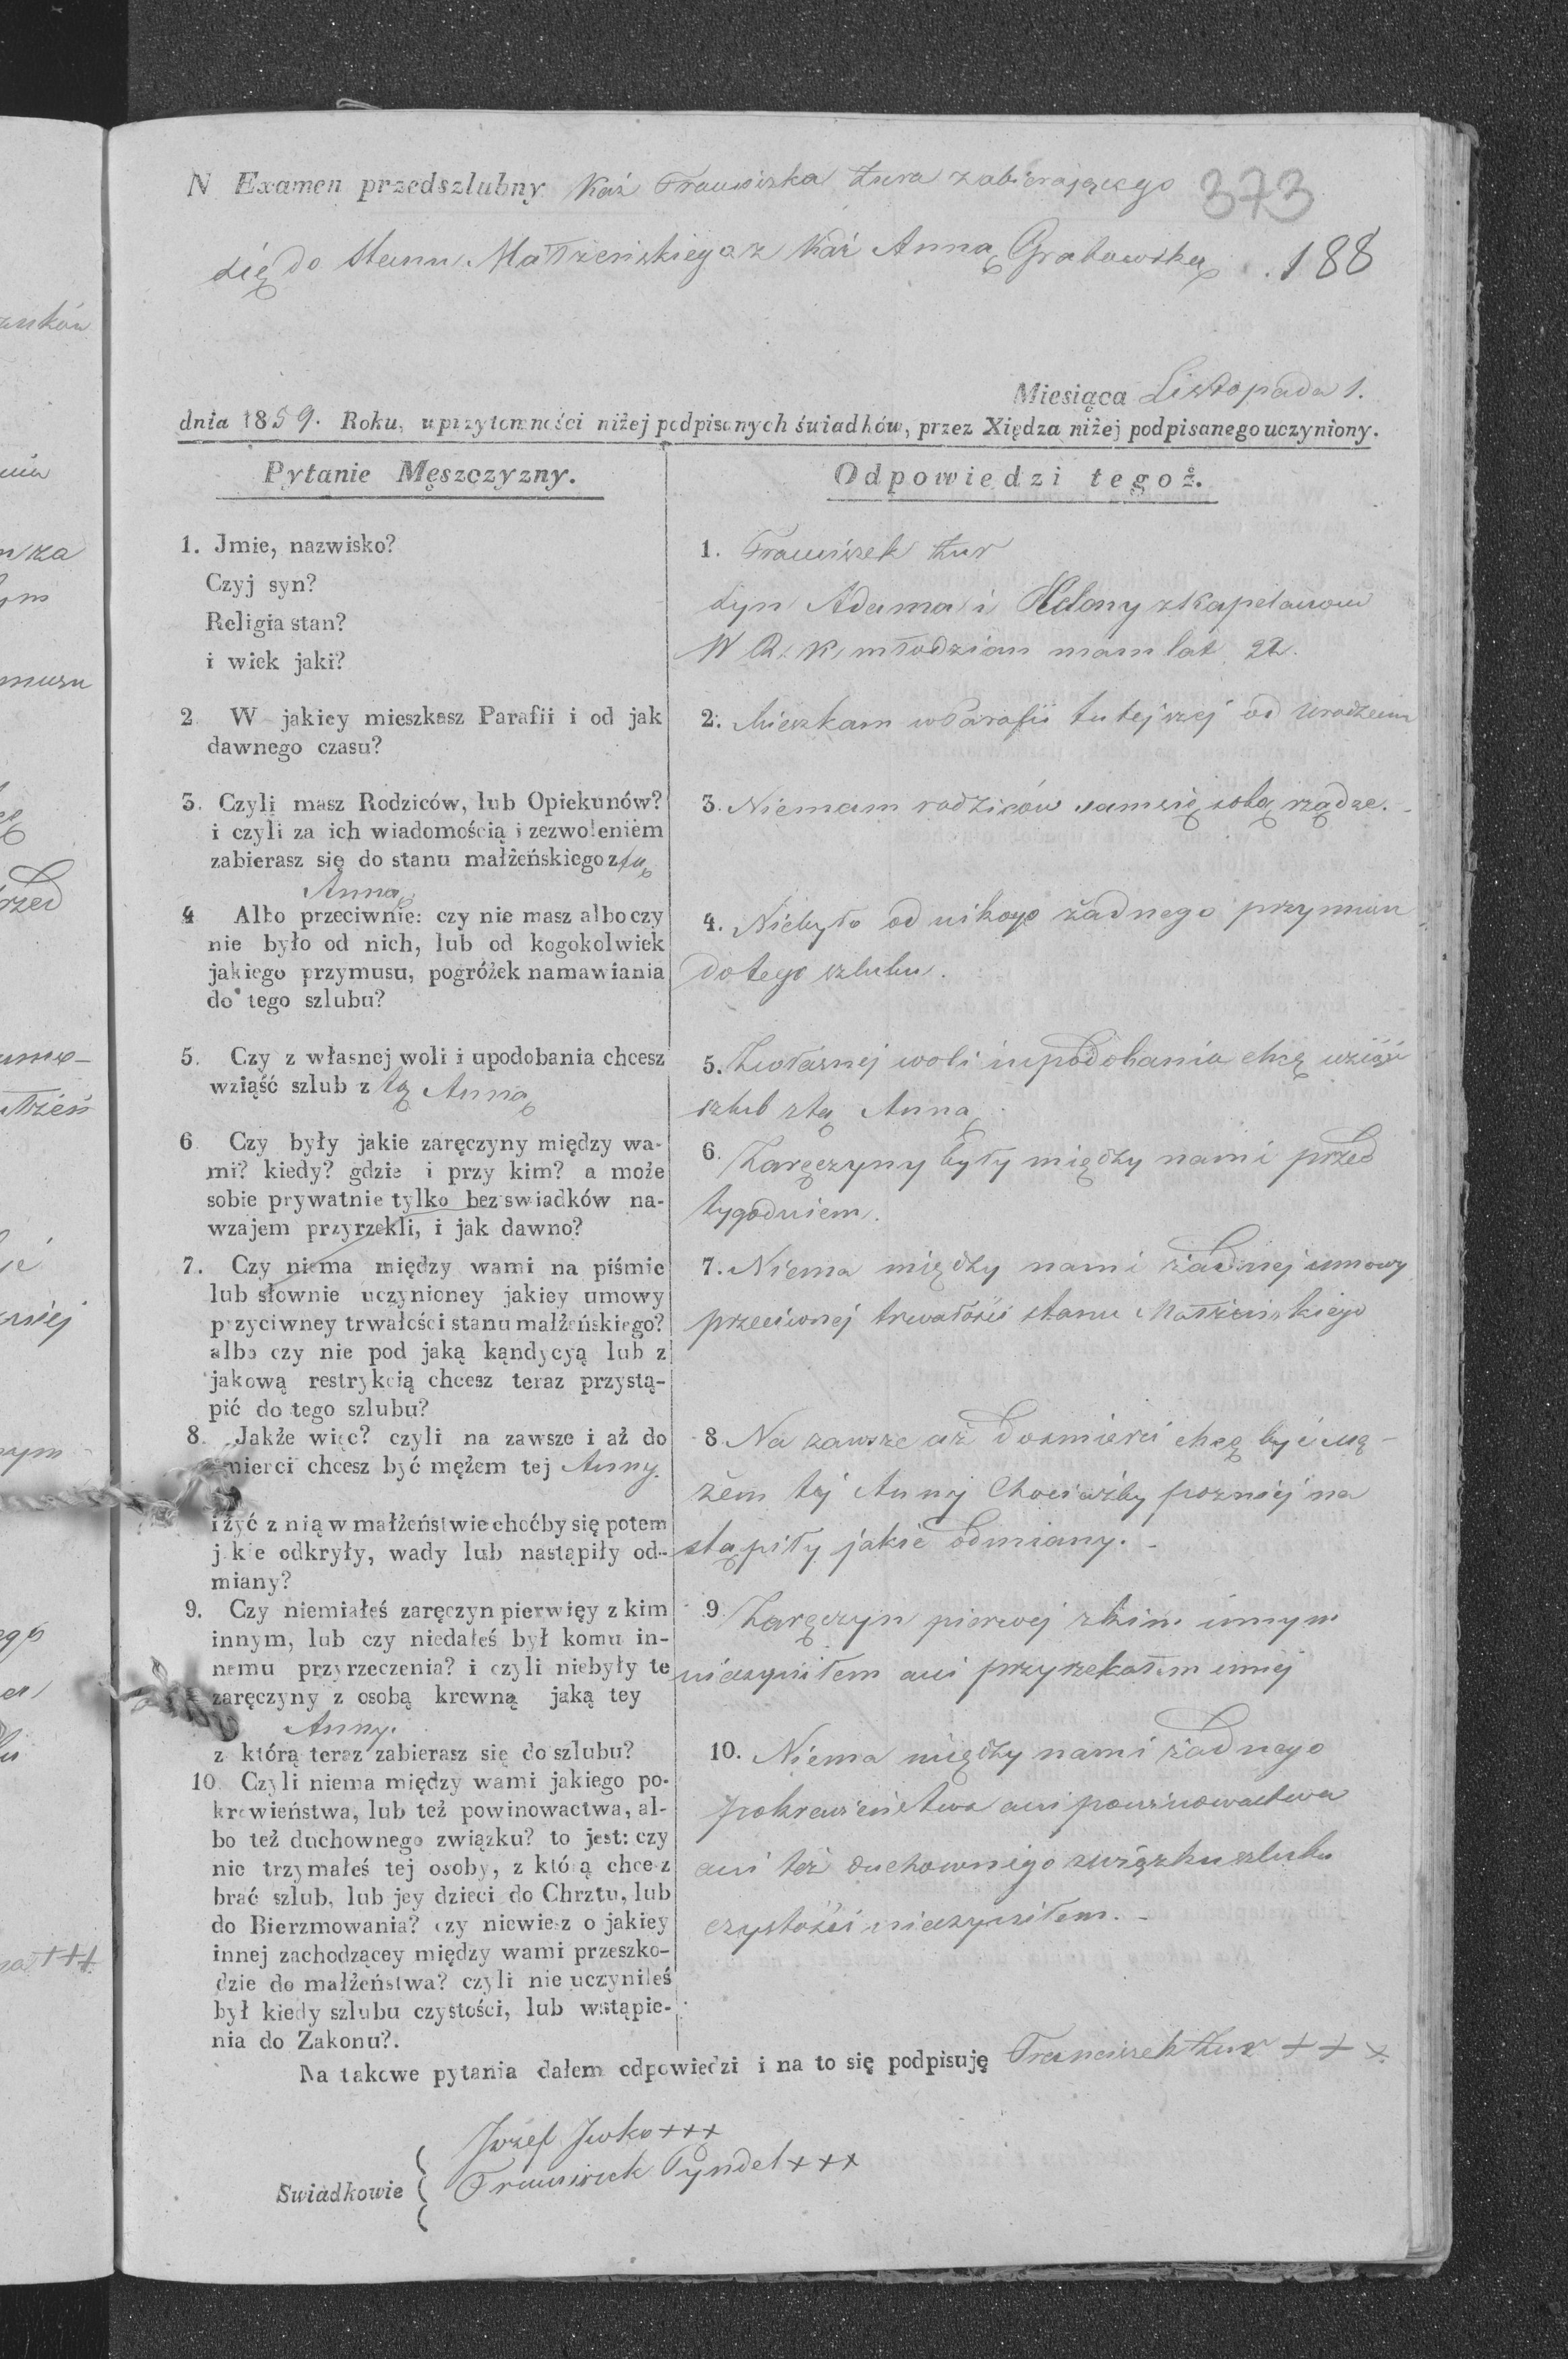 N Examen przedszlubny Kaź Franciszka Żura zabierającego 373
się do Stanu Małżeńskiego z Kaź Anną Grabowską 188
Miesiąca Listopada 1.
dnia 1859. Roku, uprzytomności niżej podpisanych świadków, przez Xiędza niżej podpisanego uczyniony.
Pytanie Męszczyzny.
1. Jmie, nazwisko?
Czyj syn?
Religia stan?
i wiek jaki?
2. W jakiey mieszkasz Parafii i od jak
dawnego czasu?
3. Czyli masz Rodziców, lub Opiekunów?
i czyli za ich wiadomością i zezwoleniem
zabierasz się do stanu małżeńskiego z tą
Anną
4 Albo przeciwnie: czy nie masz albo czy
nie było od nich, lub od kogokolwiek
jakiego przymusu, pogróżek namawiania
do tego szlubu?
5. Czy z własnej woli i upodobania chcesz
wziąść szlub z tą Anną
6 Czy były jakie zaręczyny między wa-
mi? kiedy? gdzie i przy kim? a może
sobie prywatnie tylko bez swiadków na-
wzajem przyrzekli, i jak dawno?
7. Czy niema między wami na piśmie
lub słownie uczynioney jakiey umowy
przyciwney trwałości stanu małżeńskiego?
albo czy nie pod jaką kądycyą lub z
jakową restrykcią chcesz teraz przystą-
pić do tego szlubu?
8. Jakże więc? czyli na zawsze i aż do
śmierci chcesz być mężem tej Anny.
i żyć z nią w małżeństwie choćby się potem
jakie odkryły, wady lub nastąpiły od-
miany?
9. Czy niemiałeś zaręczyn pierwięy z kim
innym, lub czy niedałeś był komu in-
nemu przyrzeczenia? i czyli niebyły te
zaręczyny z osobą krewną jaką tey
Anny.
z którą teraz zabierasz się do szlubu?
10. Czyli niema między wami jakiego po-
krewieństwa, lub też powinowactwa, al-
bo też duchownego związku? to jest: czy
nie trzymałeś tej osoby, z którą chcesz
brać szlub, lub jey dzieci do Chrztu, lub
do Bierzmowania? czy niewiesz o jakiey
innej zachodzącey między wami przeszko-
dzie do małżeństwa? czyli nie uczyniłeś
był kiedy szlubu czystości, lub wstąpie-
nia do Zakonu?.
Odpowiedzi tegoż.
1. Franciszek Żur
syn Adama i Heleny z Kapelanow
W R: K, młodzian mam lat 22.
2. Mieszkam w Parafii tutejszej od urodzenia
3. Niemam rodziców sam się sobą rządze.
4. Niebyło od nikogo żadnego przymusu
do tego szlubu.
5. Zwłasnej woli i upodobania chcę wziąść
szlub z tą Anną
6. Zaręczyny były między nami przed
tygodniem.
7. Niema między nami żadnej umowy
przeciwnej trwałości stanu Małżeńskiego
8. Na zawsze aż do śmierci chcę być mę-
żem tej Anny Chociażby poźniej na
stąpiły jakie odmiany.
9. Zaręczyn pierwej z kim innym
nieczyniłem ani przyrzekałem innej
10. Niema między nami żadnego
pokrewieństwa ani powinowactwa
ani też duchownego związku szlubu
czystości nieczyniłem.
Na takowe pytania dałem odpowiedzi i na to się podpisuję Franciszek Żur + + +
Józef Jwko +++
Swiadkowie Franciszek Pyndel +++